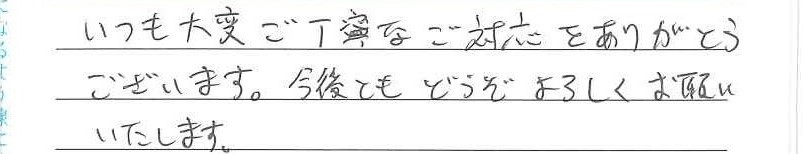 いつも大変ご丁寧なご対応をありがとう
ございます。今後ともどうぞよろしくお願い
いたします。